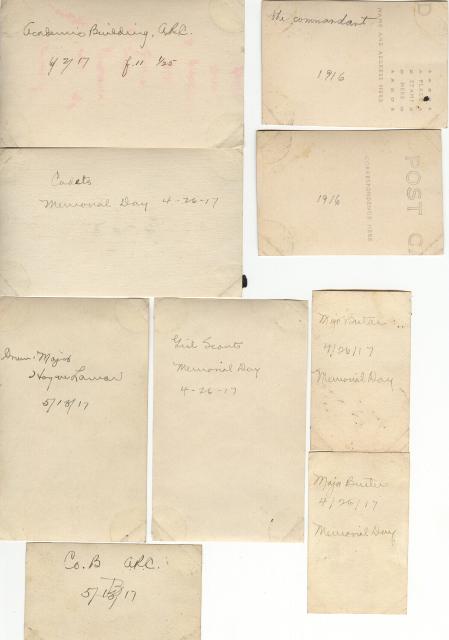 Academic Building, A.R.C.
4/2/17 f.11 1/25
the commandant
1916
NAME AND ADDRESS HERE
PLACE
STAMP
HERE
Cadets
Memorial Day 4-26-17
1916
CORRESPONDENCE HERE
POST C
Drum Major
5/18/17
Girl Scouts
Memorial Day
4-26-17
Major Butler
4/26/17
Memorial Day
Major Butler
4/26/17
Memorial Day
Co. B A.R.C.